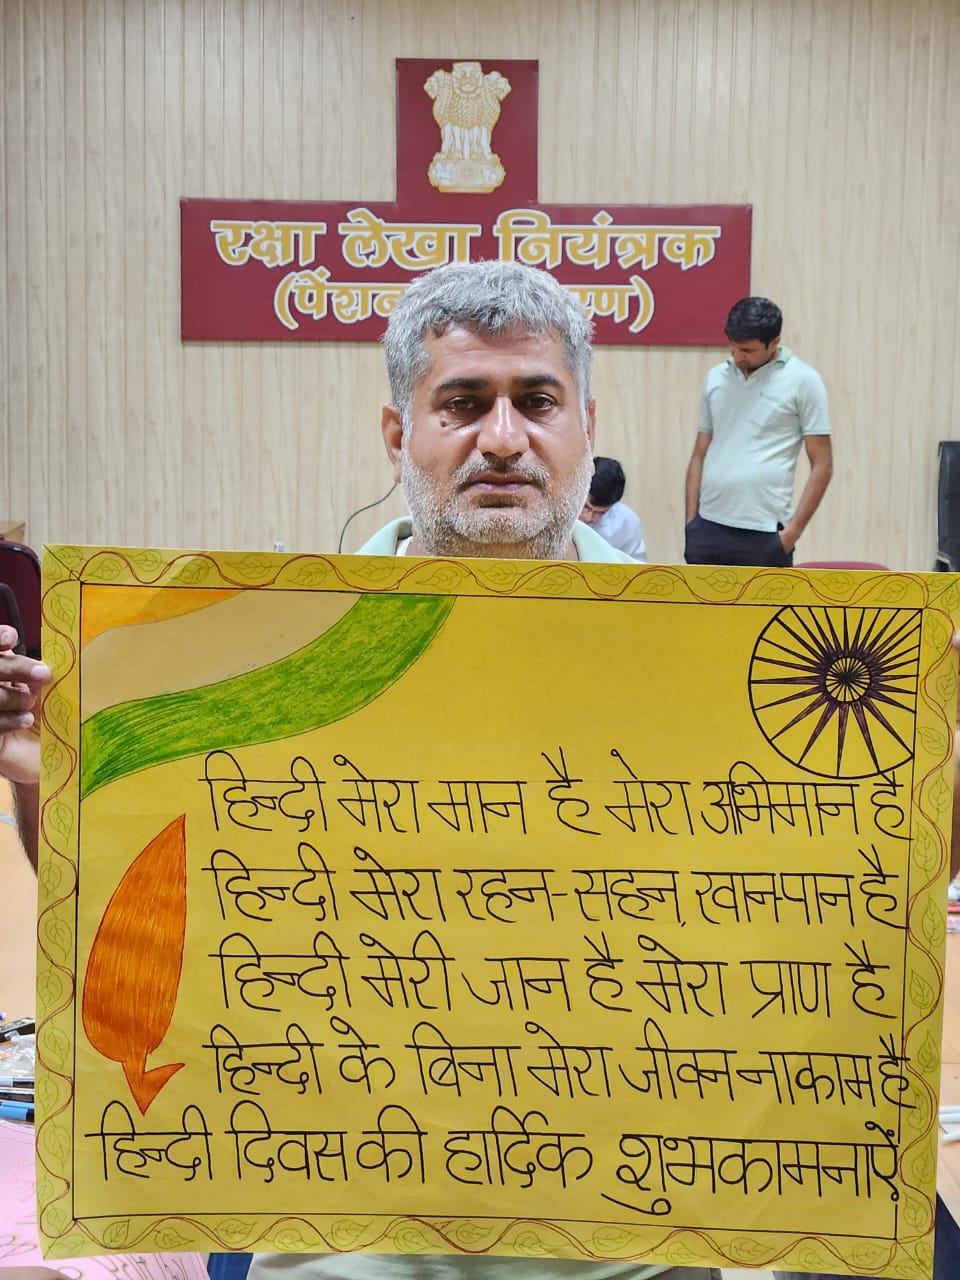 रक्षा लेखा नियंत्रक
हिन्दी मेरा मान है मेरा अभिमान है
हिन्दी मेरा रहन-सहन, खान-पान है
हिन्दी मेरी जान है मेरा प्राण है
हिन्दी के बिना मेरा जीवन नाकाम है
हिन्दी दिवस की हार्दिक शुभकामनाऐं